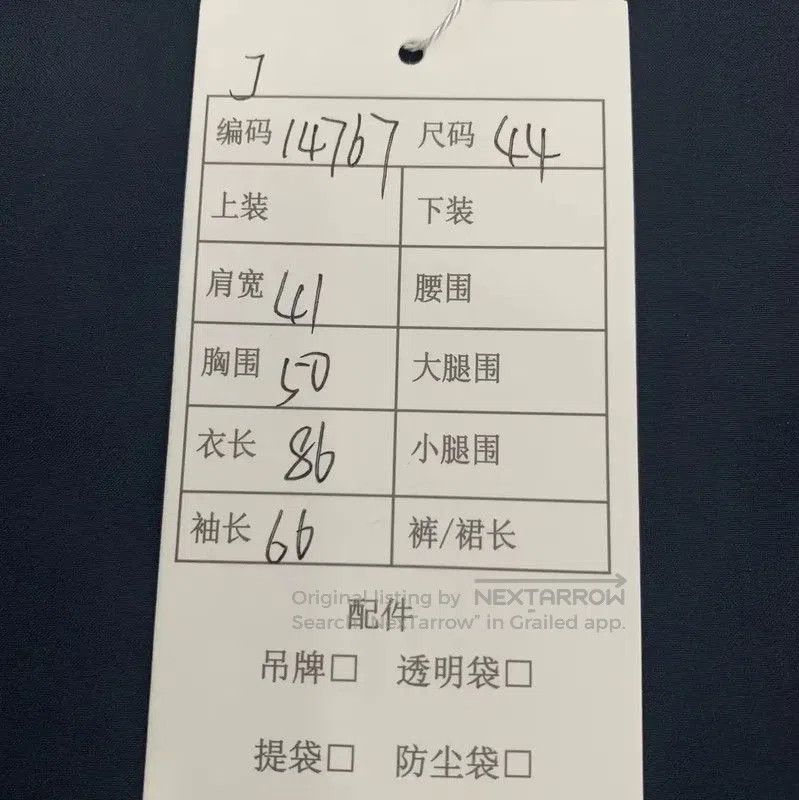 J
编码 14767 尺码 44
上装 下装
肩宽 41 腰围
胸围 50 大腿围
衣长 86 小腿围
袖长 66 裤/裙长
Original listing by NEXTARROW
配件
Search "NexTarrow" in Grailed app.
吊牌□ 透明袋□
提袋□ 防尘袋□